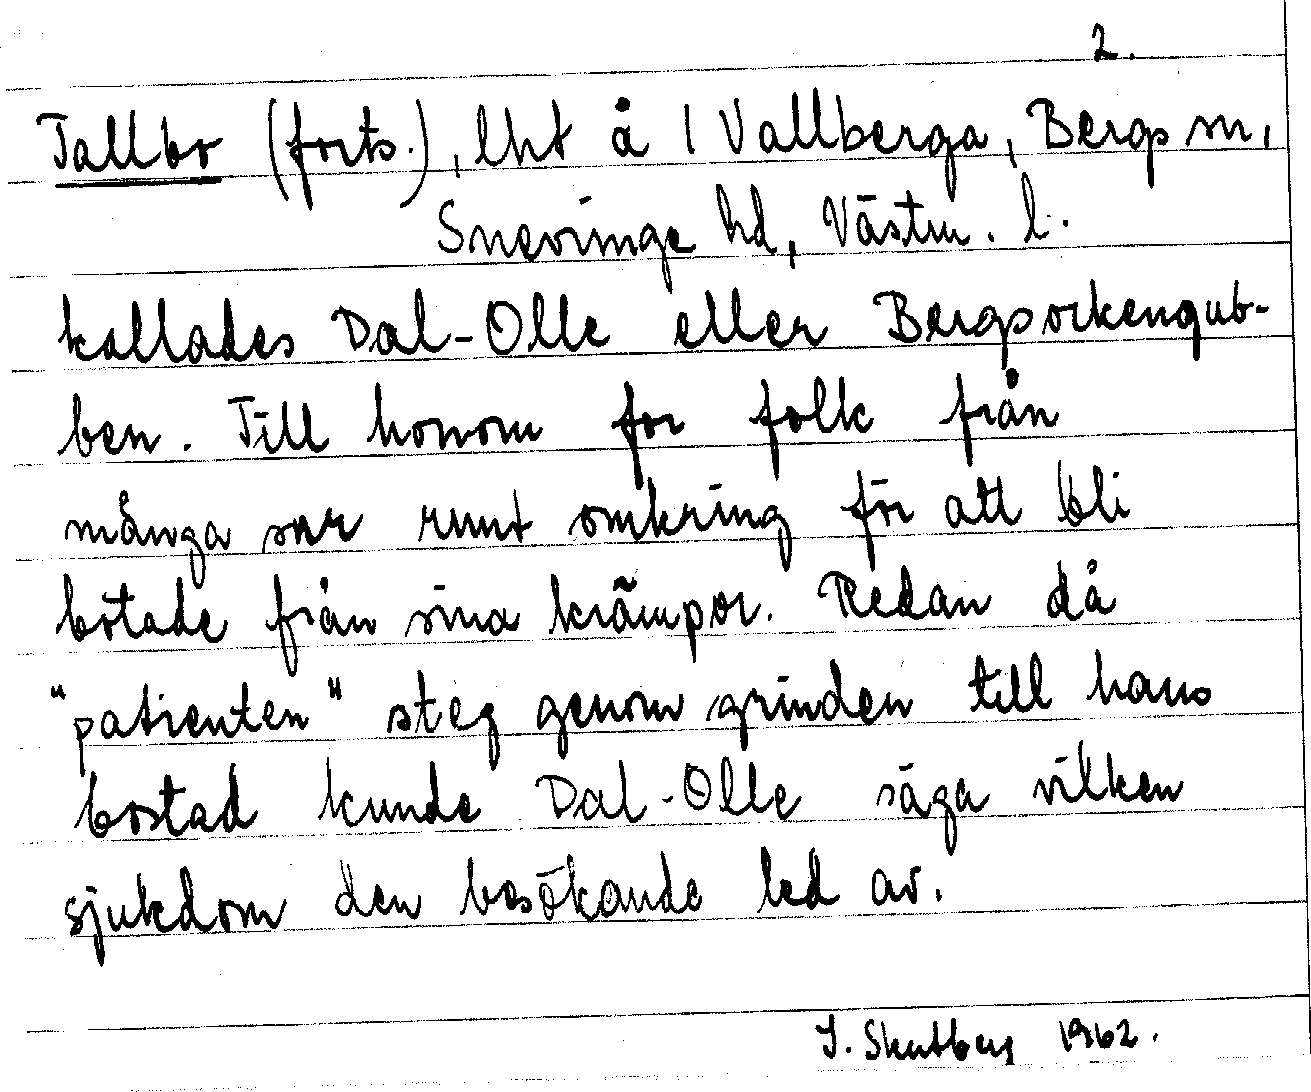 2.
Tallbo (forts.), lht å 1 Vallberga, Bergs sn,
Snevringe hd, Västm. l.
kallades Dal-Olle eller Bergsorkengub-
ben. Till honom for folk från
många snr runt omkring för att bli
botade från sina krämpor. Redan då
"patienten" steg genom grinden till hans
bostad kunde Dal-Olle säga vilken
sjukdom den besökande led av.
I. Skutberg 1962.